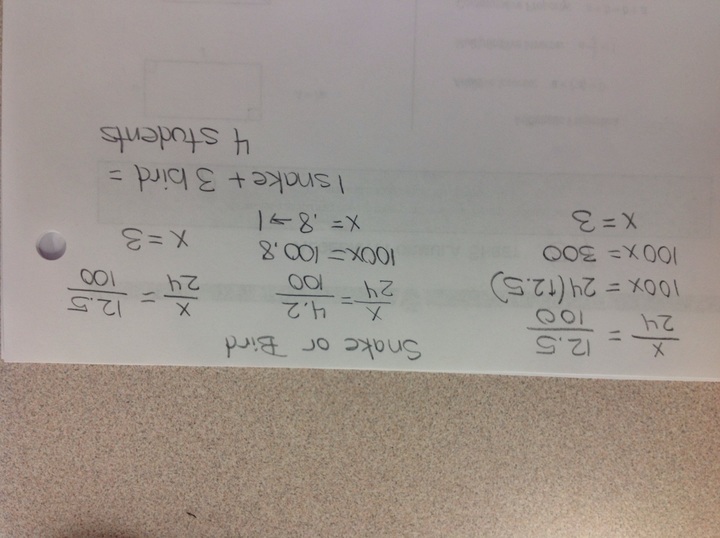 x/24 = 12.5/100
100x = 24(12.5)
100x = 300
x = 3
Snake or Bird
x/24 = 4.2/100
100x = 100.8
x = .8 → 1
x/24 = 12.5/100
x = 3
1 snake + 3 bird =
4 students